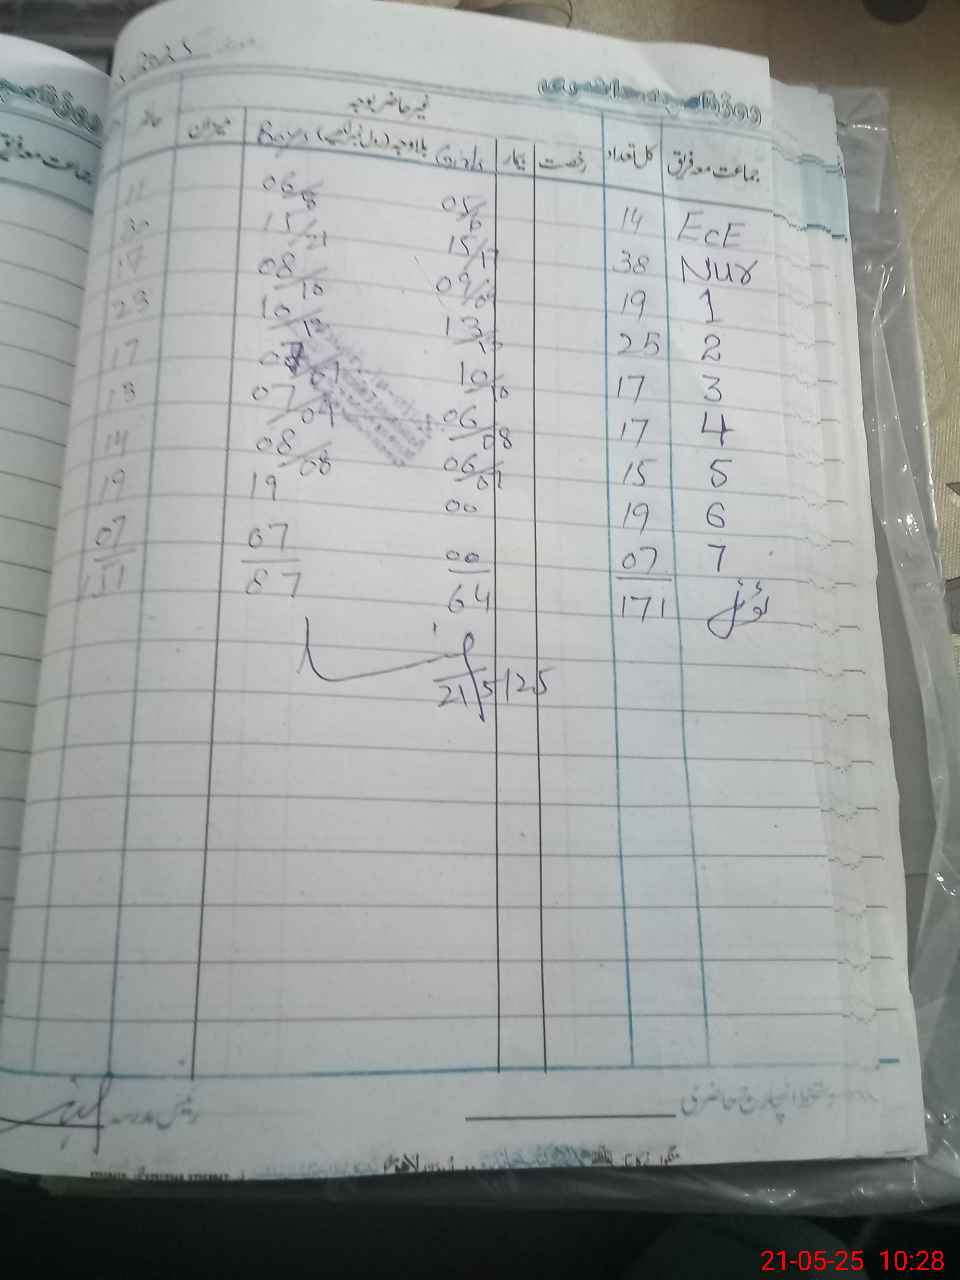 2025
روزنامچہ حاضری
جماعت معہ فریق کل تعداد غیر حاضر بوجہ میزان حاضر
رخصت بیمار Girls بلاوجہ Boys
ECE 14 05/6 06/8
Nur 38 15/17 15/21 30
1 19 09/09 08/10 17
2 25 13/15 10/10 23
3 17 10/10 07 17
4 17 06/08 07/09 13
5 15 06/07 08/08 14
6 19 00 19 19
7 07 00 07 07
ٹوٹل 171 64 87 151
21/5/25
دستخط انچارج حاضری رئیس مدرسہ
21-05-25 10:28